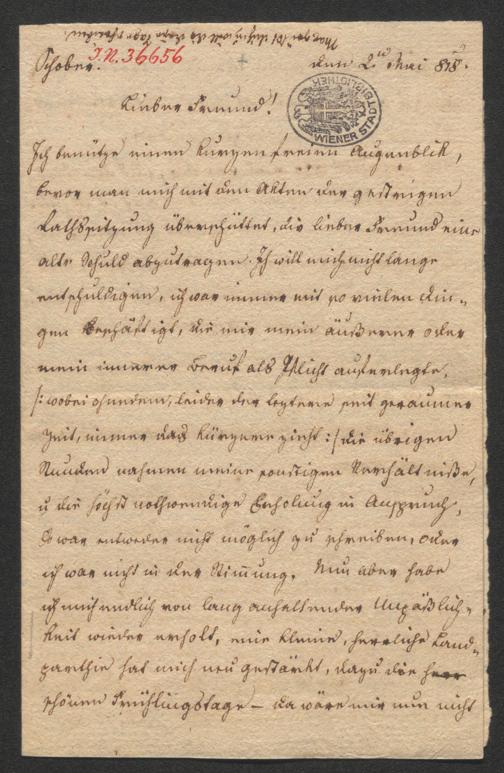 Schober.
I.N. 36656
den 2ten Mai 818.
WIENER STADTBIBLIOTHEK
Lieber Freund!
Ich benütze einen kurzen freien Augenblik,
bevor man mich mit den Akten der gestrigen
Rathssitzung überschüttet, dir lieber Freund eine
alte Schuld abzutragen. Ich will mich nicht lange
entschuldigen, ich war immer mit so vielen Din-
gen beschäftigt, die mir mein äußerer oder
mein innerer Beruf als Pflicht auferlegte,
/: wobei ohnedem, leider der leztere seit geraumer
Zeit, immer das Kürzere zieht :/ die übrigen
Stunden nahmen meine sonstigen Verhältniße,
u die höchst nothwendige Erholung in Anspruch,
es war entweder nicht möglich zu schreiben, oder
ich war nicht in der Stimmung. Nun aber habe
ich mich endlich von lang anhaltender Unpäßlich-
keit wieder erholt, eine kleine, herrliche Land-
parthie hat mich neu gestärkt, dazu die
schönen Frühlingstage – da wäre mir nun nicht